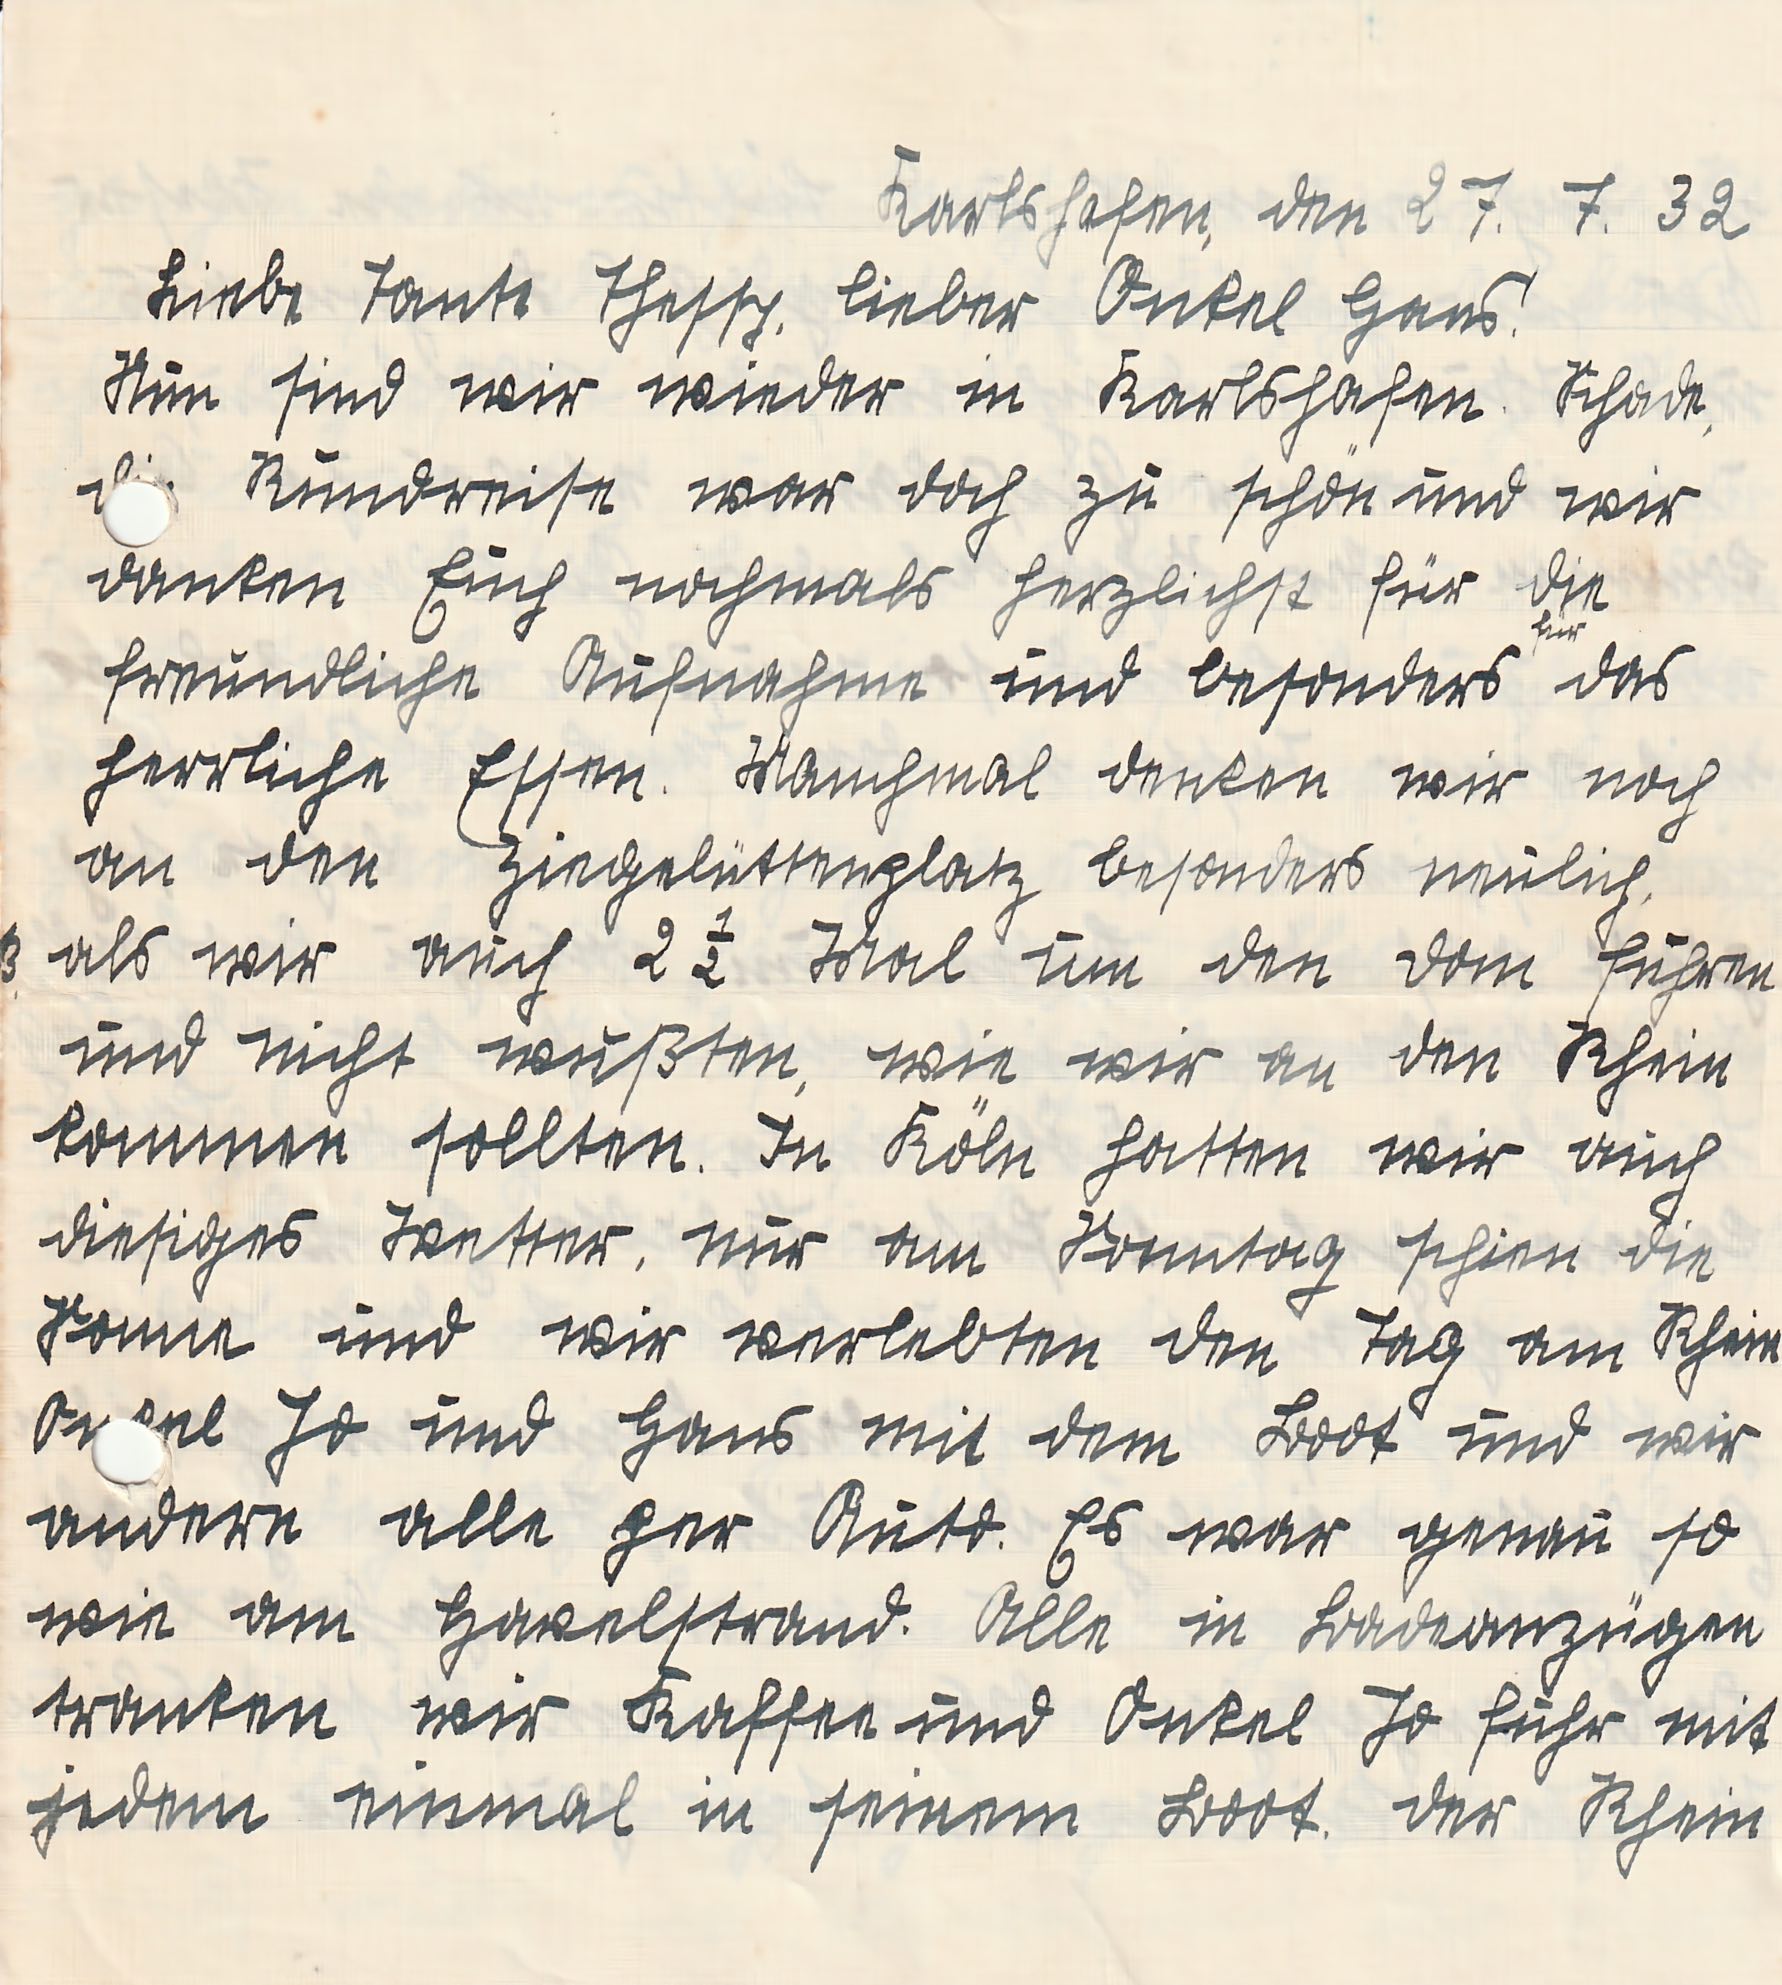 Karlshafen, den 27. 7. 32
Liebe Tante Thessy, lieber Onkel Hans!
Nun sind wir wieder in Karlshafen. Schade,
die Rundreise war doch zu schön und wir
danken Euch nochmals herzlichst für die
freundliche Aufnahme und besonders für das
herrliche Essen. Manchmal denken wir noch
an den Ziegelüttenplatz besonders neulich,
als wir auch 2 1/2 Mal um den Dom fuhren
und nicht wußten, wie wir an den Rhein
kommen sollten. In Köln hatten wir auch
diesiges Wetter, nur am Sonntag schien die
Sonne und wir verlebten den Tag am Rhein
Onkel Jo und Hans mit dem Boot und wir
andern alle per Auto. Es war genau so
wie am Havelstrand. Alle in Badeanzügen
tranken wir Kaffee und Onkel Jo fuhr mit
jedem einmal in seinem Boot. Der Rhein